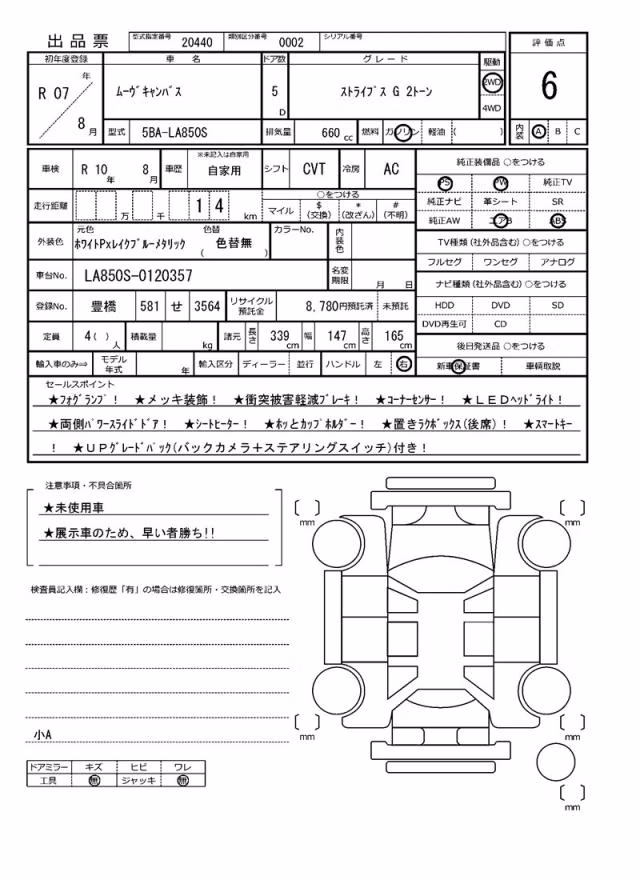 出品票 型式指定番号 20440 類別区分番号 0002 シリアル番号
初年度登録 車名 ドア数 グレード 駆動 評価点
R 07 年 8 月 ムーヴキャンバス 5 D ストライプス G 2トーン 2WD 4WD 6
型式 5BA-LA850S 排気量 660 cc 燃料 ガソリン 軽油 ( ) 内装 A B C
車検 R 10 年 8 月 車歴 ※未記入は自家用 自家用 シフト CVT 冷房 AC
走行距離 万 千 1 4 km ○をつける マイル $ (交換) * (改ざん) # (不明)
外装色 元色 ホワイトPxレイクブルーメタリック 色替 ( 色替無 ) カラーNo. 内装色
車台No. LA850S-0120357 名変期限 月 日
登録No. 豊橋 581 せ 3564 リサイクル預託金 8,780円預託済 未預託
定員 4 ( ) 人 積載量 kg 諸元 長さ 339 cm 幅 147 cm 高さ 165 cm
輸入車のみ⇒ モデル年式 年 輸入区分 ディーラー 並行 ハンドル 左 右
純正装備品 ○をつける
PS PW 純正TV
純正ナビ 革シート SR
純正AW エアB ABS
TV種類 (社外品含む) ○をつける
フルセグ ワンセグ アナログ
ナビ種類 (社外品含む) ○をつける
HDD DVD SD
DVD再生可 CD
後日発送品 ○をつける
新車保証書 車輌取説
セールスポイント
★フォグランプ! ★メッキ装飾! ★衝突被害軽減ブレーキ! ★コーナーセンサー! ★LEDヘッドライト!
★両側パワースライドドア! ★シートヒーター! ★ホッとカップホルダー! ★置きラクボックス(後席)! ★スマートキー
! ★UPグレードパック(バックカメラ+ステアリングスイッチ)付き!
注意事項・不具合箇所
★未使用車
★展示車のため、早い者勝ち!!
検査員記入欄:修復歴「有」の場合は修復箇所・交換箇所を記入
小A
ドアミラー キズ ヒビ ワレ
工具 無 ジャッキ 無
[ ] mm [ ] mm
[ ] mm [ ] mm
[ ] mm